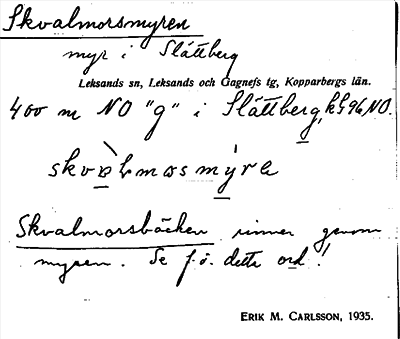 Skvalmorsmyren
myr i Slättberg
Leksands sn, Leksands och Gagnefs tg, Kopparbergs län.
400 m NO "g" i Slättberg, kG96NO.
Skvalmorsbäcken rinner genom
myren. Se f.ö. detta ord!
ERIK M. CARLSSON, 1935.